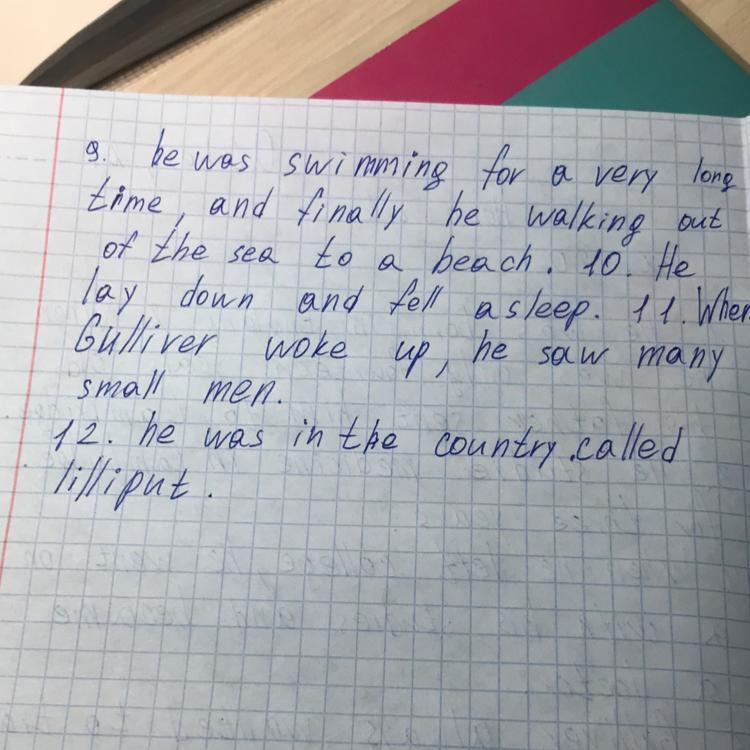 9. he was swimming for a very long
time, and finally he walking out
of the sea to a beach. 10. He
lay down and fell asleep. 11. When
Gulliver woke up, he saw many
small men.
12. he was in the country .called
lilliput.